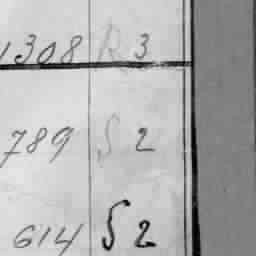 1308 R 3
789 S 2
614 S 2